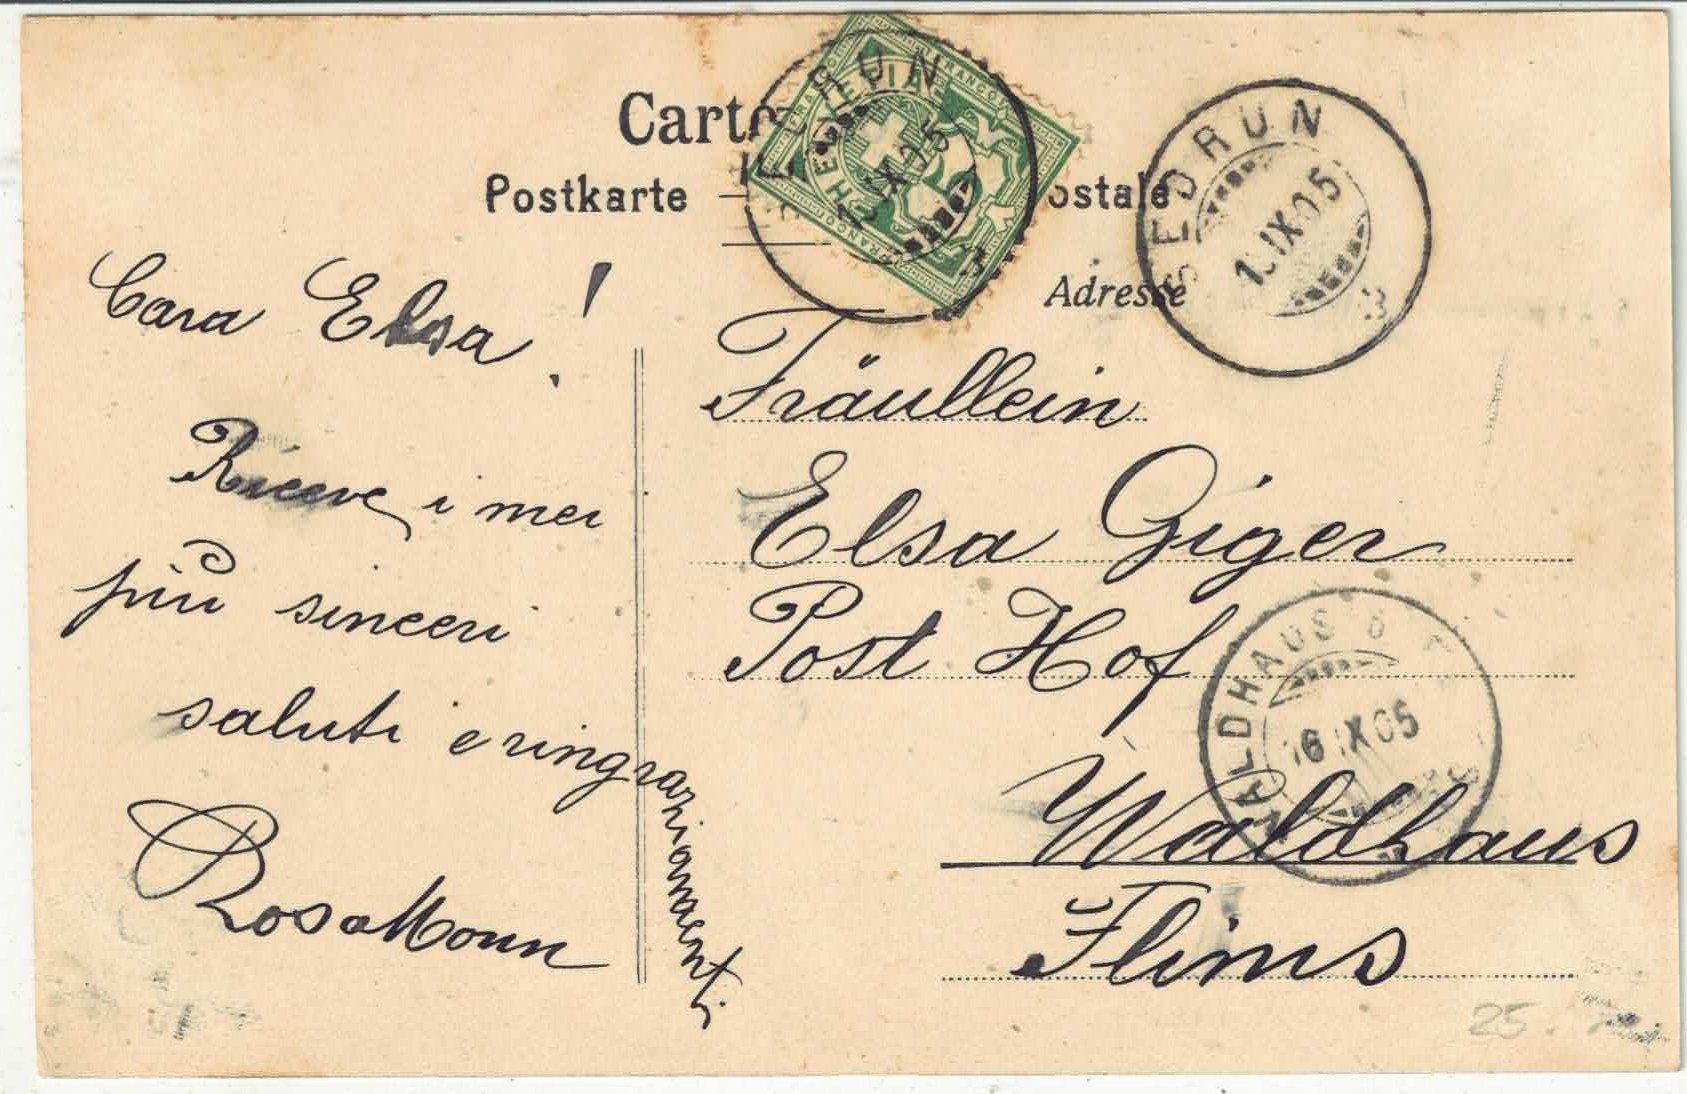 Postkarte
Adresse
SEDRUN
IX.05
SEDRUN
IX.05
HELVETIA
FRANCO
Cara Elsa!
Riceve i miei
più sinceri
saluti e ringraziamenti
Rosa Monn
Fräullein
Elsa Giger
Post Hof
Waldhaus
Flims
WALDHAUS
16.IX.05
25.